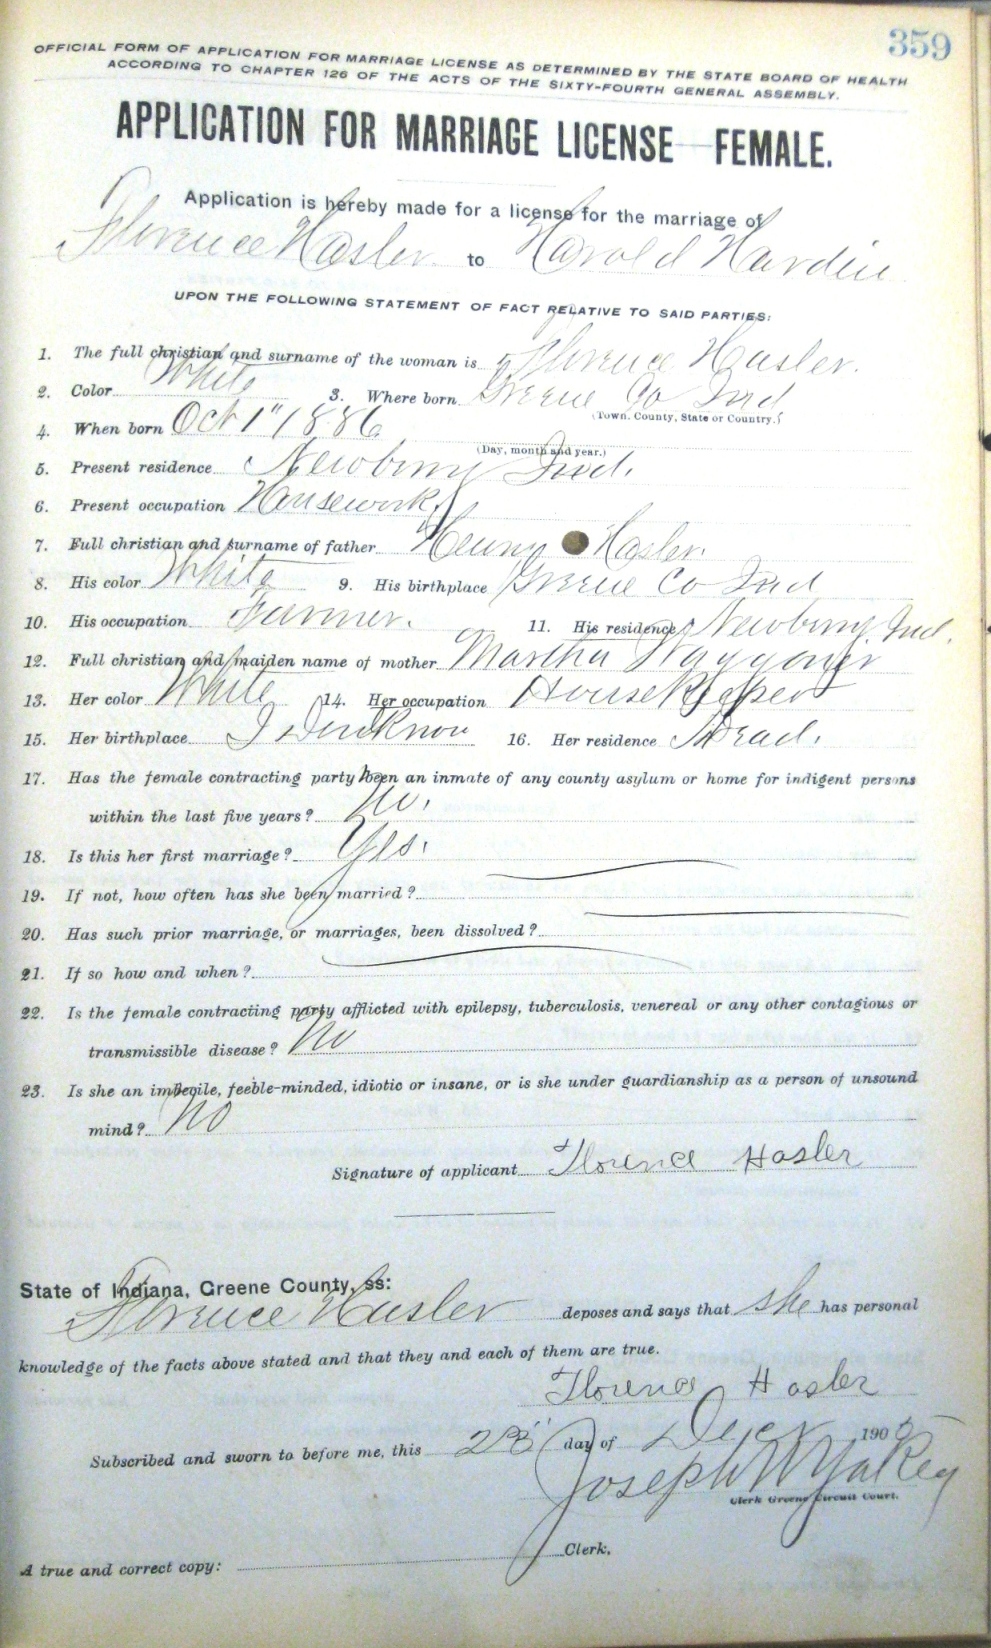 359
OFFICIAL FORM OF APPLICATION FOR MARRIAGE LICENSE AS DETERMINED BY THE STATE BOARD OF HEALTH
ACCORDING TO CHAPTER 126 OF THE ACTS OF THE SIXTY-FOURTH GENERAL ASSEMBLY.
APPLICATION FOR MARRIAGE LICENSE FEMALE.
Application is hereby made for a license for the marriage of
Florence Hasler to Harold Hardin
UPON THE FOLLOWING STATEMENT OF FACT RELATIVE TO SAID PARTIES:
1. The full christian and surname of the woman is Florence Hasler.
2. Color White 3. Where born Greene Co Ind
(Town. County, State or Country.)
4. When born Oct 1" 1886
(Day, month and year.)
5. Present residence Newberry Ind.
6. Present occupation Housework
7. Full christian and surname of father Henry Hasler.
8. His color White 9. His birthplace Greene Co Ind
10. His occupation Farmer. 11. His residence Newberry Ind.
12. Full christian and maiden name of mother Martha Waggoner
13. Her color White 14. Her occupation Housekeeper
15. Her birthplace I Dont know 16. Her residence Dead.
17. Has the female contracting party been an inmate of any county asylum or home for indigent persons
within the last five years? No.
18. Is this her first marriage? Yes.
19. If not, how often has she been married?
20. Has such prior marriage, or marriages, been dissolved?
21. If so how and when?
22. Is the female contracting party afflicted with epilepsy, tuberculosis, venereal or any other contagious or
transmissible disease? No
23. Is she an imbecile, feeble-minded, idiotic or insane, or is she under guardianship as a person of unsound
mind? No
Signature of applicant Florence Hasler
State of Indiana, Greene County, ss:
Florence Hasler deposes and says that she has personal
knowledge of the facts above stated and that they and each of them are true.
Florence Hasler
Subscribed and sworn to before me, this 23" day of Decr 190
Joseph W Yakey
Clerk Greene Circuit Court.
Clerk.
A true and correct copy: